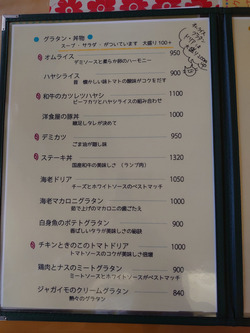 グラタン・丼物
スープ・サラダ・がついています 大盛り100+
オムライス 950
デミソースと柔らか卵のハーモニー
ハヤシライス 900
昔懐かしい味トマトの酸味がコクをだす
和牛のカツレツハヤシ 1100
ビーフカツとハヤシライスの組み合わせ
洋食屋の豚丼 900
継足しタレが決めて
デミカツ 950
ごま油が隠し味
ステーキ丼 1320
国産和牛の美味しさ (ランプ肉)
海老ドリア 1050
チーズとホワイトソースのベストマッチ
海老マカロニグラタン 1000
茹で上げのマカロニの歯ごたえ
白身魚のポテトグラタン 900
香ばしいタラが美味しさの秘訣
チキンときのこのトマトドリア 1000
トマトソースのコクが美味しさ倍増
鶏肉とナスのミートグラタン 900
ミートソースとホワイトソースがベストマッチ
ジャガイモのクリームグラタン 840
熱々のグラタン